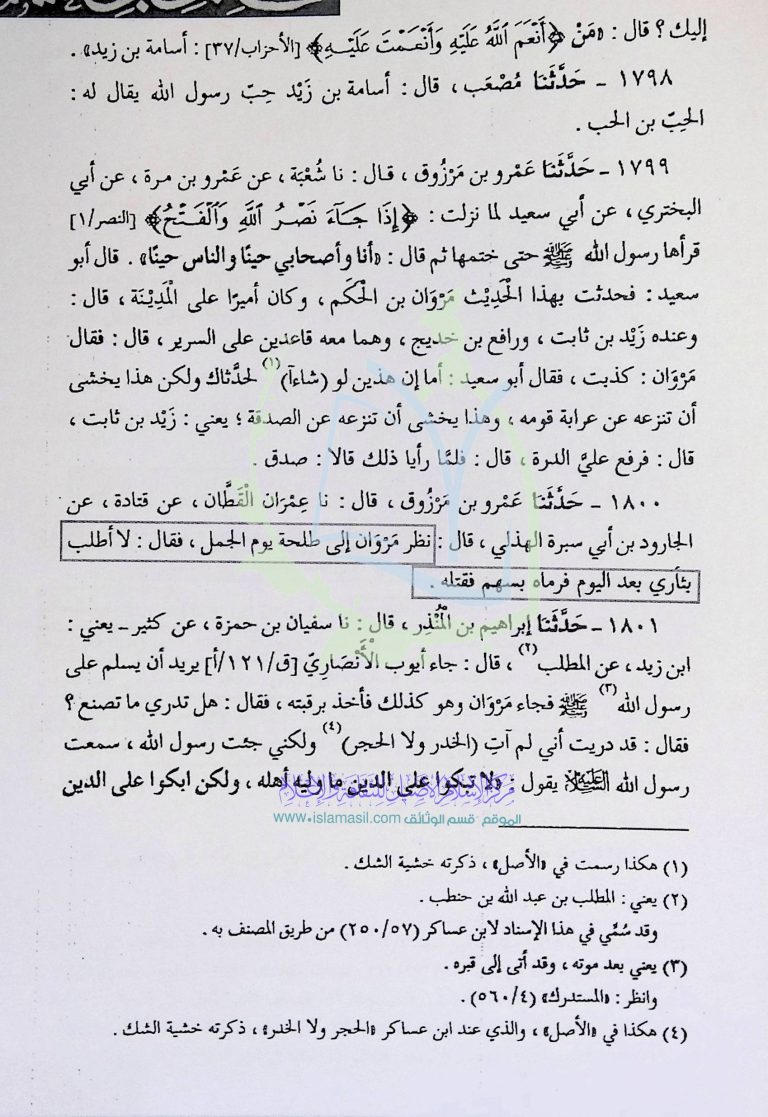 إليك ؟ قال : «مَنْ ﴿أَنْعَمَ ٱللَّهُ عَلَيْهِ وَأَنْعَمْتَ عَلَيْهِ﴾ [الأحزاب/٣٧] : أسامة بن زيد» .
١٧٩٨ - حَدَّثَنَا مُصْعَب ، قال : أسامة بن زَيْد حِبّ رسول الله يقال له :
الحِبّ بن الحب .
١٧٩٩ - حَدَّثَنَا عَمْرو بن مَرْزُوق ، قال : نا شُعْبَة ، عن عَمْرو بن مرة ، عن أبي
البختري ، عن أبي سعيد لما نزلت : ﴿إِذَا جَآءَ نَصْرُ ٱللَّهِ وَٱلْفَتْحُ﴾ [النصر/١]
قرأها رسول الله ﷺ حتى ختمها ثم قال : «أنا وأصحابي حينًا والناس حينًا» . قال أبو
سعيد : فحدثت بهذا الْحَدِيْث مَرْوَان بن الْحَكَم ، وكان أميرًا على الْمَدِيْنَة ، قال :
وعنده زَيْد بن ثابت ، ورافع بن خديج ، وهما معه قاعدين على السرير ، قال : فقال
مَرْوَان : كذبت ، فقال أبو سعيد : أما إن هذين لو (شاءآ)(١) لحدَّثاك ولكن هذا يخشى
أن تنزعه عن عرابة قومه ، وهذا يخشى أن تنزعه عن الصدقة ؛ يعني : زَيْد بن ثابت ،
قال : فرفع عليَّ الدرة ، قال : فلمَّا رأيا ذلك قالا : صدق .
١٨٠٠ - حَدَّثَنَا عَمْرو بن مَرْزُوق ، قال : نا عِمْرَان الْقَطَّان ، عن قتادة ، عن
الجارود بن أبي سبرة الهذلي ، قال : نظر مَرْوَان إلى طلحة يوم الجمل ، فقال : لا أطلب
بثأري بعد اليوم فرماه بسهم فقتله .
١٨٠١ - حَدَّثَنَا إبراهيم بن الْمُنْذِر ، قال : نا سفيان بن حمزة ، عن كثير - يعني :
ابن زيد ، عن المطلب(٢) ، قال : جاء أيوب الْأَنْصَارِيّ [ق/١٢١/أ] يريد أن يسلم على
رسول الله(٣) ﷺ فجاء مَرْوَان وهو كذلك فأخذ برقبته ، فقال : هل تدري ما تصنع ؟
فقال : قد دريت أني لم آتِ (الخدر ولا الحجر)(٤) ولكني جئت رسول الله ، سمعت
رسول الله يقول : «لا تبكوا على الدين ما وليه أهله ، ولكن ابكوا على الدين
الموقع قسم الوثائق www.islamasil.com
(١) هكذا رسمت في «الأصل» ، ذكرته خشية الشك .
(٢) يعني : المطلب بن عبد الله بن حنطب .
وقد سُمِّي في هذا الإسناد لابن عساكر (٢٥٠/٥٧) من طريق المصنف به .
(٣) يعني بعد موته ، وقد أتى إلى قبره .
وانظر : «المستدرك» (٥٦٠/٤) .
(٤) هكذا في «الأصل» ، والذي عند ابن عساكر «الحجر ولا الخدر» ، ذكرته خشية الشك .